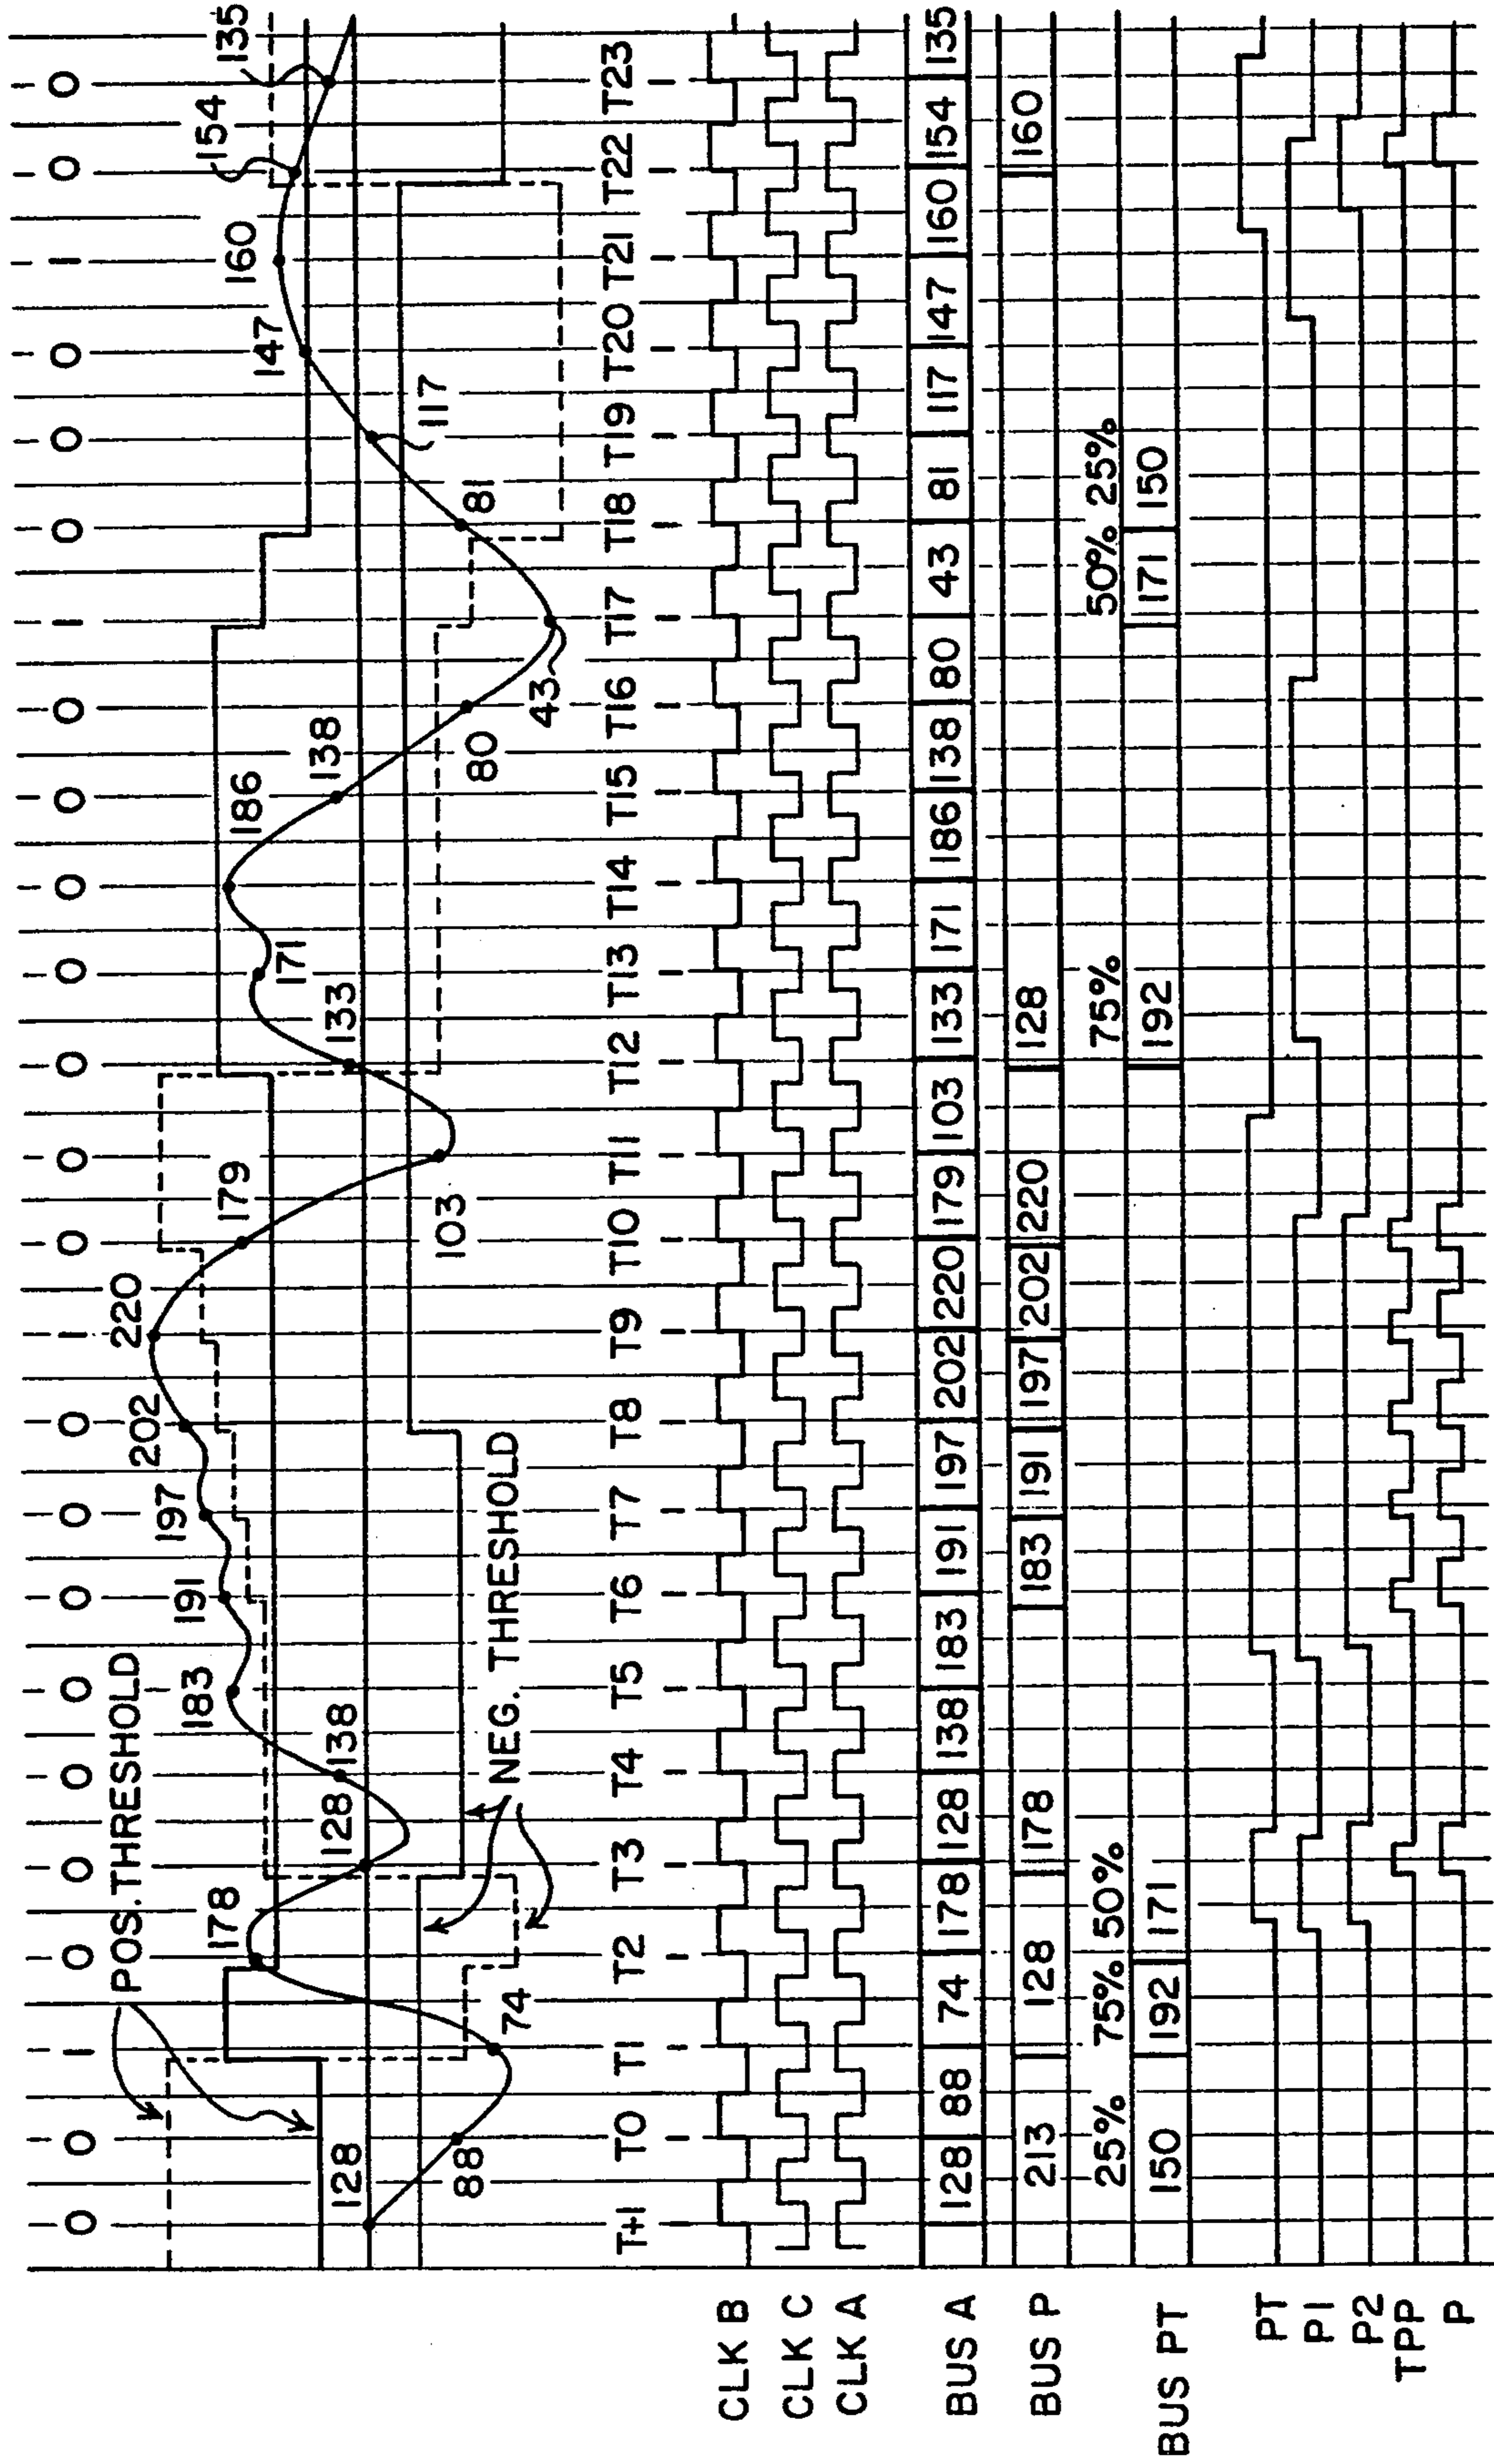 0 0 1 0 0 0 0 0 0 0 1 0 0 0 0 0 0 0 1 0 0 0 1 0 0
POS. THRESHOLD
128
88
74
178
128
138
183
191
197
202
220
179
103
133
171
186
138
80
43
81
117
147
160
154
135
NEG. THRESHOLD
T+1 T0 T1 T2 T3 T4 T5 T6 T7 T8 T9 T10 T11 T12 T13 T14 T15 T16 T17 T18 T19 T20 T21 T22 T23
CLK B
CLK C
CLK A
BUS A 128 88 74 178 128 138 183 191 197 202 220 179 103 133 171 186 138 80 43 81 117 147 160 154 135
BUS P 213 128 178 183 191 197 202 220 128 160
25% 75% 50% 75% 50% 25%
BUS PT 150 192 171 192 171 150
PT
P1
P2
TPP
P